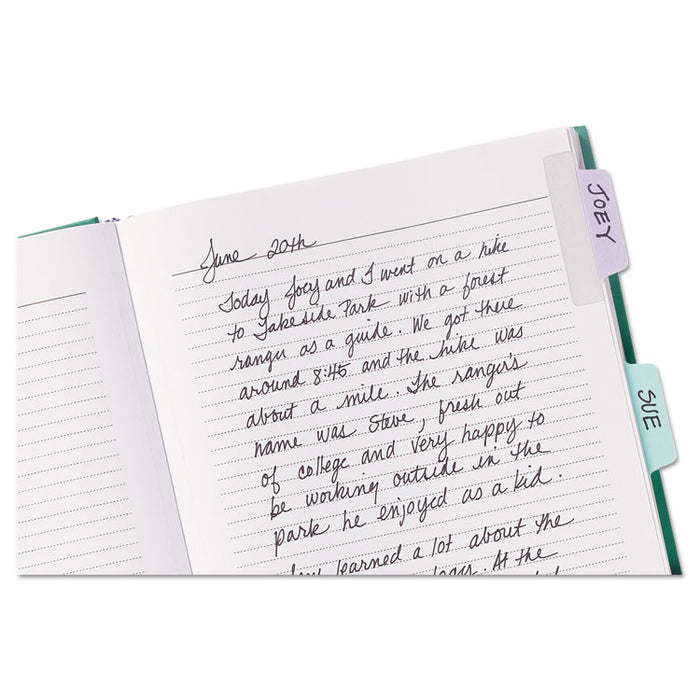 June 20th
Today Joey and I went on a hike
to Lakeside Park with a forest
ranger as a guide. We got there
around 8:45 and the hike was
about a mile. The ranger's
name was Steve, fresh out
of college and very happy to
be working outside in the
park he enjoyed as a kid.
learned a lot about the
At the
JOEY
SUE